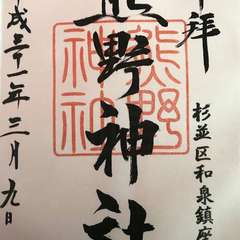 奉拝
杉並区和泉鎮座
熊野神社
熊野
神社
成三十一年三月九日